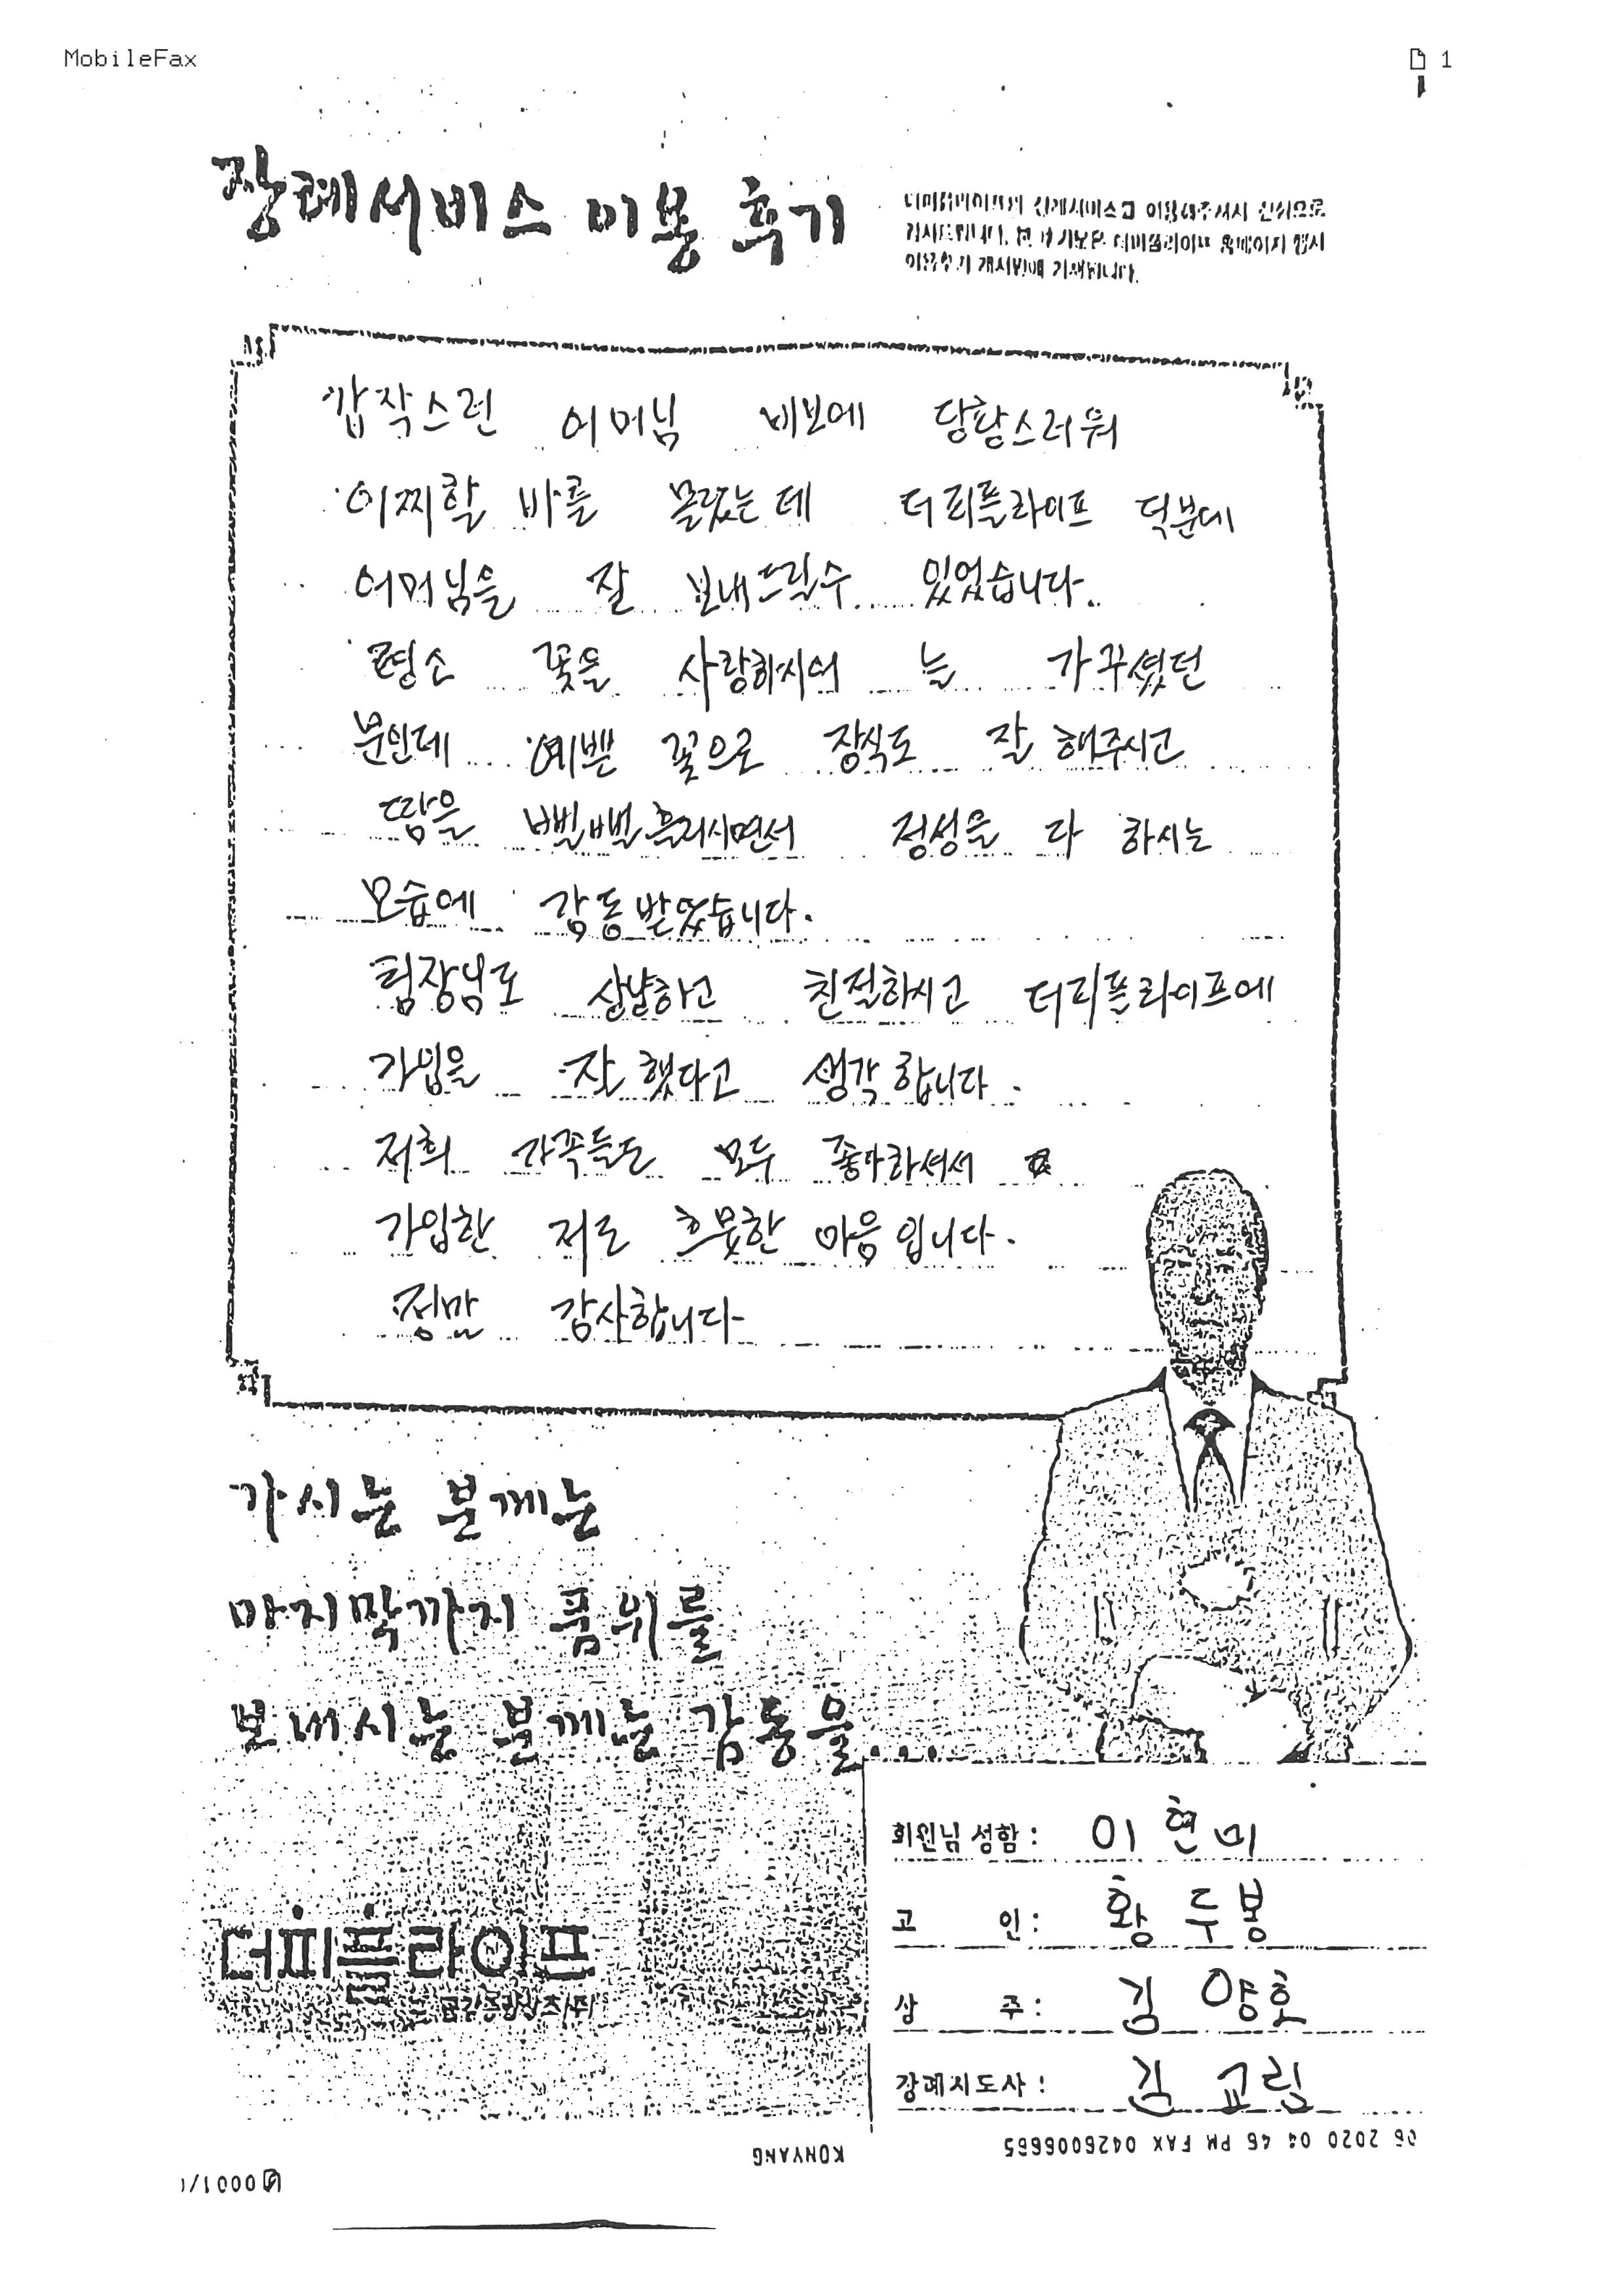 MobileFax
1
장례서비스 이용 후기
더피플라이프의 장례서비스를 이용해주셔서 진심으로
감사드립니다. 본 후기보은 더피플라이프 홈페이지 행사
이용후기 게시판에 기재됩니다.
갑작스런 어머님 비보에 당황스러워
어찌할 바를 몰랐는데 더피플라이프 덕분에
어머님을 잘 보내드릴수 있었습니다.
평소 꽃을 사랑하시어 늘 가꾸셨던
분인데 예쁜 꽃으로 장식도 잘 해주시고
땀을 뻘뻘 흘리시면서 정성을 다 하시는
모습에 감동받았습니다.
팀장님도 상냥하고 친절하시고 더피플라이프에
가입을 잘 했다고 생각합니다.
저희 가족들도 모두 좋아하셔서
가입한 저도 흐뭇한 마음입니다.
정말 감사합니다
가시는 분께는
마지막까지 품위를
보내시는 분께는 감동을....
더피플라이프
회원님 성함: 이현미
고 인: 황두봉
상 주: 김양호
장례지도사: 김교림
06 2020 04:46 PM FAX 0426006665
KONYANG
0001/